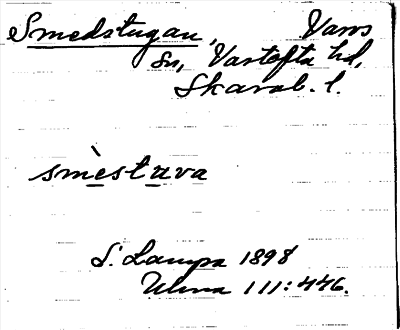 Smedstugan, Vårs
sn, Vartofta hd,
Skarab. l.
smèstuva
S. Lampa 1898
Ulma 111:446.